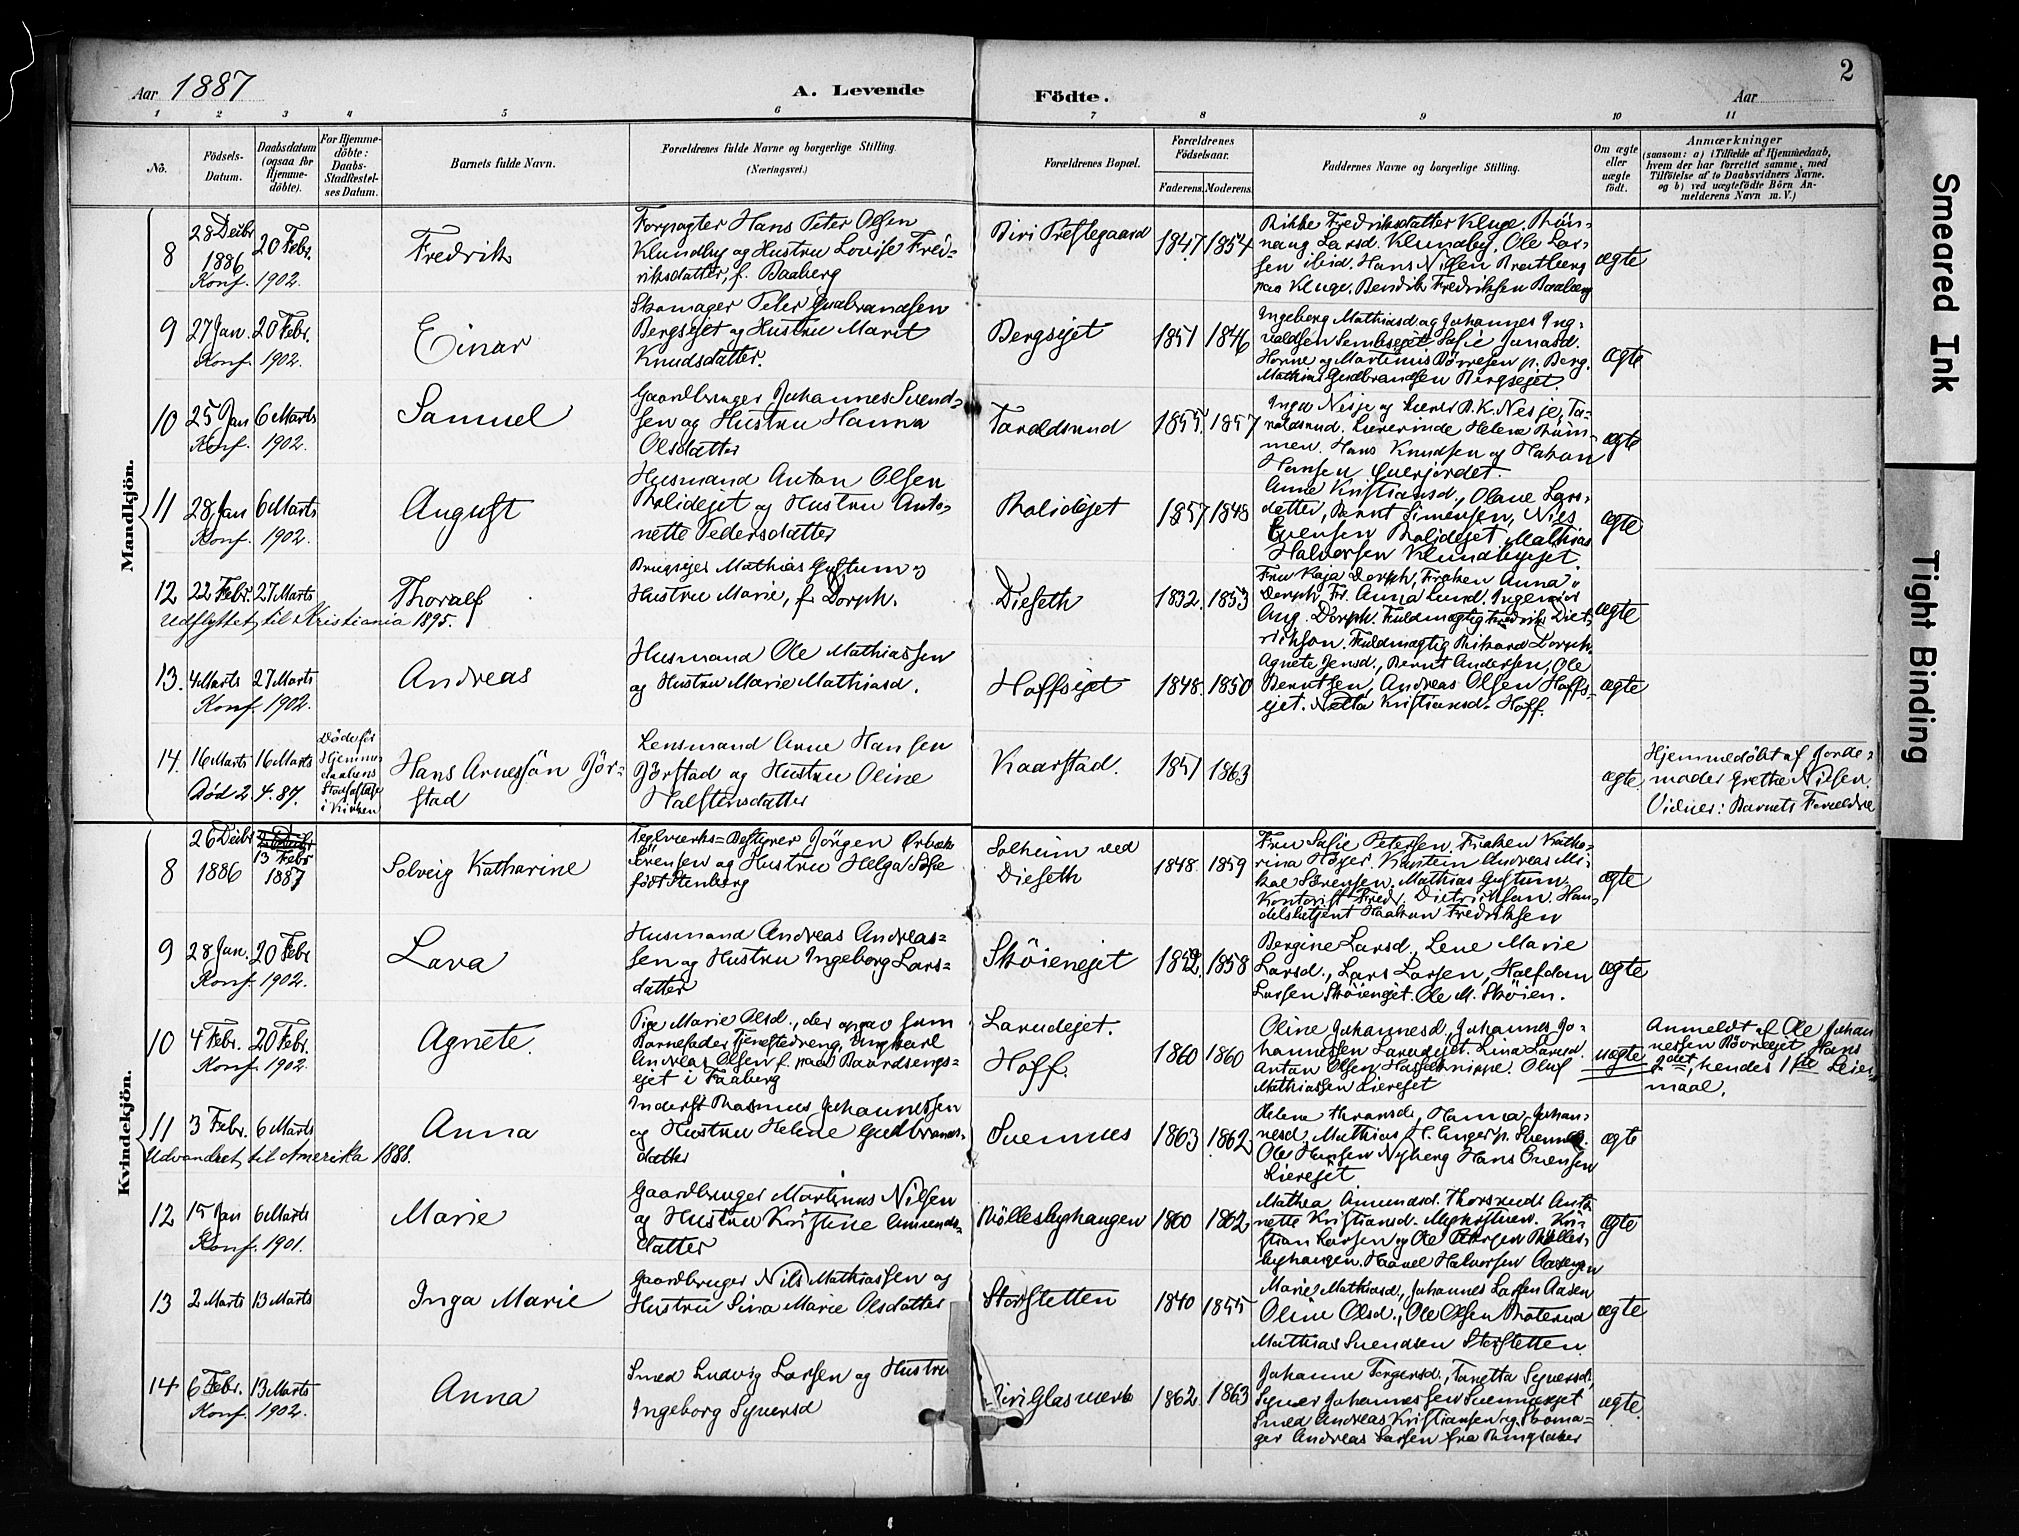 Aar 1887
A. Levende
Födte.
Aar
2
1 2 3 4 5 6 7 8 9 10 11
No.
Födsels-
Datum.
Daabsdatum
(ogsaa for
Hjemme-
döbte).
For Hjemme-
döbte:
Daabs-
Stadfestel-
ses Datum.
Barnets fulde Navn.
Forældrenes fulde Navne og borgerlige Stilling.
(Næringsvei.)
Forældrenes Bopæl.
Forældrenes
Födselsaar.
Faderens. Moderens.
Faddernes Navne og borgerlige Stilling.
Om ægte
eller
uægte
födt.
Anmærkninger
(saasom: a) i Tilfælde af Hjemmedaab,
hvem der har forrettet samme, med
Tilföielse af to Daabsvidners Navne.
og b) ved uægtefödte Börn An-
melderens Navn m. V.)
Mandkjön.
8
28 Decbr
1886
Konf.
20 Febr.
1902.
Fredrik
Forpagter Hans Peter Olsen
Klundby og Hustru Lovise Fred-
riksdatter, f. Baaberg
Biri Prestegaard
1847 1854
Rikke Fredriksdatter Kluge. Rön-
naug Larsd. Klundby. Ole Lar-
sen ibid. Hans Nilsen Bratberg
paa Kluge. Bendrik Fredriksen Baaberg
ægte
9
27 Jan.
Konf.
20 Febr.
1902.
Einar
Skomager Peter Gudbrandsen
Bergsejet og Hustru Marit
Knudsdatter.
Bergsejet
1851 1846
Ingeborg Mathiasd. og Johannes Ing-
valdsen Sofie Jonasd.
Horne og Martinus Börresen p. Berg.
Mathias Gudbrandsen Bergsejet.
ægte
10
25 Jan
Konf.
6 Marts
1902.
Samuel
Gaardbruger Johannes Svend-
sen og Hustru Hanna
Olsdatter
Taraldsrud
1855. 1857
Inga Nesje og Lærer B. K. Nesje, Ta-
raldsrud. Lærerinde Helene
Hans Knudsen og Hakon
Hansen Qverjordet.
ægte
11
28 Jan
Konf.
6 Marts
1902.
August
Husmand Anton Olsen
Bolidejet og Hustru Anto-
nette Pedersdatter
Bolidejet
1857 1848
Anne Kristiansd., Olave Lars-
datter, Bernt Simensen, Nils
Evensen Bolidejet. Mathias
Halvorsen Klundbyejet.
ægte
12
22 Febr. 27 Marts
Udflyttet til Kristiania 1895.
Thoralf
Brugsejer Mathias Gystum og
Hustru Marie, f. Dorph.
Dieseth
1832. 1853
Fru Kaja Dorph, Frøken Anna
Dorph. Fr. Anna Lund, Ingeniør
Aug. Dorph. Fuldmægtig Fredrik Diet-
rikson. Fuldmægtig Rikard Dorph.
ægte
13.
4 Marts
Konf.
27 Marts
1902.
Andreas
Husmand Ole Mathiassen
og Hustru Marie Mathiasd.
Hoffsejet
1848. 1850
Agnete Jensd., Bernt Andersen, Ole
Berntsen, Andreas Olsen Hoffs-
ejet. Netta Kristiansd. Hoff.
ægte
14.
16 Marts
Död 2
16 Marts
4. 87.
Döde för
Hjemme-
daabens
Stadfæstelse
i Kirken
Hans Arnessön Jör-
stad
Lensmand Arne Hansen
Jörstad og Hustru Oline
Halstensdatter
Kaarstad.
1851 1863
ægte
Hjemmedöbt af Jorde-
moder Grethe Nilsen.
Vidner: Barnets Forældre
Kvindekjön.
8
26 Decbr
1886
13 Febr
1887
Solveig Katharine
Teglverks-Bestyrer Jörgen
Sörensen og Hustru Helga Sofie
födt Stenberg
Solheim ved
Dieseth
1848. 1859
Fru Sofie Petersen. Frøken Katha-
rina Höyer. Kaptein Andreas Mi-
kal Sörensen. Mathias Gystum.
Kontorist Fredr. Dietrikson. Han-
delsbetjent Haakon Fredriksen
ægte
9
28 Jan.
Konf.
20 Febr
1902.
Lava
Husmand Andreas Andreas-
sen og Hustru Ingeborg Lars-
datter
Sköienejet
1852. 1858
Bergine Larsd., Lene Marie
Larsd., Lars Larsen, Halfdan
Larsen Sköienejet. Ole M. Sköien.
ægte
10
4 Febr.
Konf.
20 Febr.
1902.
Agnete.
Pige Marie Olsd., der opgav som
Barnefader Tjenestedreng, Ungkarl
Andreas Olsen f. paa Baardsengs-
ejet i Faaberg
Larudejet.
Hoff.
1860 1860
Oline Johannesd., Johannes Jo-
hannessen Larudejet. Lina Larsd.
Anton Olsen Olaf
Mathiassen Liereset
uægte
Anmeldt af Ole Johan-
nessen Hans
2det, hendes 1ste Leier-
maal.
11
3 Febr. 6 Marts
Udvandret til Amerika 1888.
Anna
Inderst Rasmus Johannessen
og Hustru Helene Gudbrands-
datter
Svennes
1863 1862
Helene Hansd., Hanna Johan-
nesd. Mathias H. Enger p. Svennes.
Ole Hansen Nyberg Hans Evensen
Lierejet
ægte
12
15 Jan
Konf.
6 Marts
1901.
Marie
Gaardbruger Martinus Nilsen
og Hustru Kristine Amunds-
datter
Böllesbyhaugen
1860 1862
Mathea Amundsd. Thorsrud. Anto-
nette Kristiansd. Kri-
stian Larsen og Ole Bölles-
byhaugen. Haavel Halvorsen Aasengen
ægte
13
2 Marts 13 Marts
Inga Marie
Gaardbruger Nils Mathiassen og
Hustru Lina Marie Olsdatter
Storstetten
1840 1855
Marie Mathiasd., Johannes Larsen Aasen
Oline Olsd., Ole Olsen Roterud
Mathias Svendsen Storstetten.
ægte
14
6 Febr.
Konf.
13 Marts
1902.
Anna
Smed Ludvig Larsen og Hustru
Ingeborg Syversd
Biri Glasværk
1862. 1863
Johanne Torgersd., Tonetta Syversd.
Syver Johannessen Svennesejet
Smed Andreas Kristiansen og Skoma-
ger Andreas Larsen fra Ringsaker
ægte.
Smeared Ink
Tight Binding